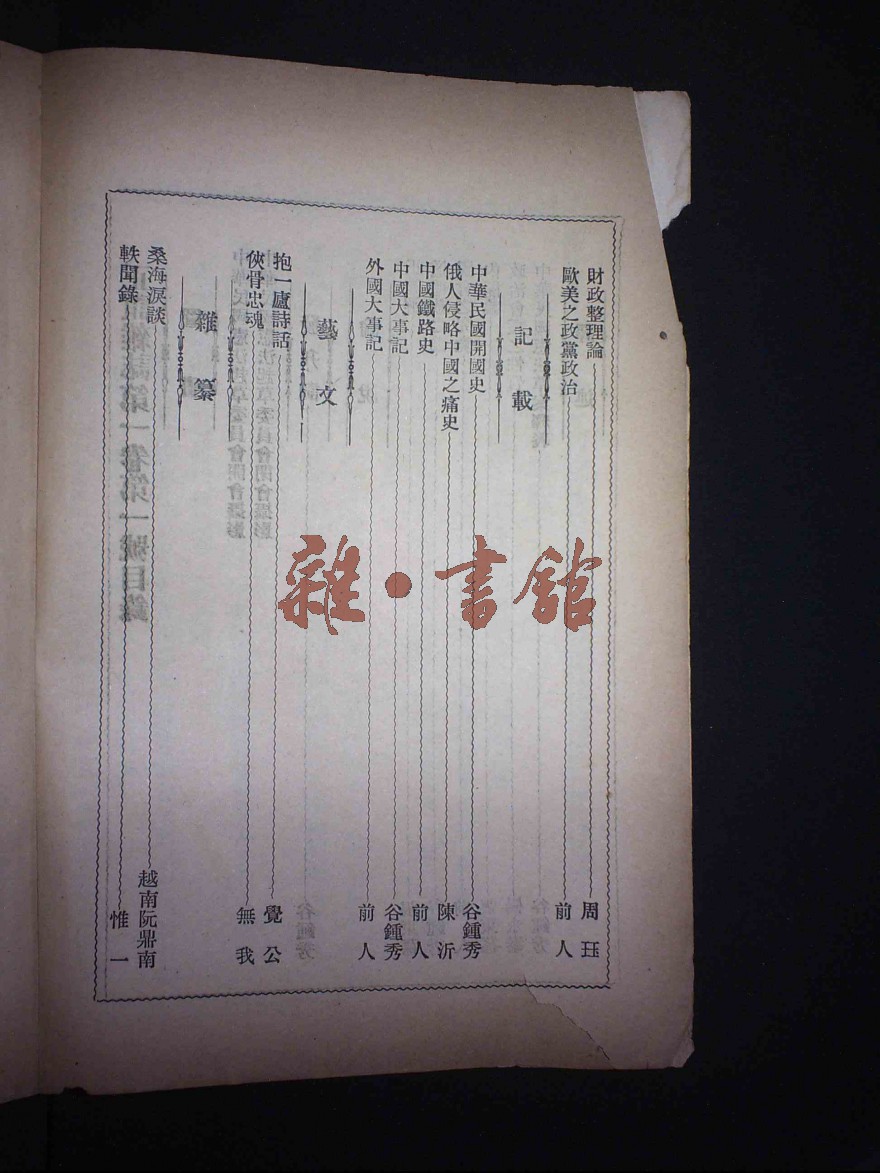 財政整理論 周珏
歐美之政黨政治 前人
記載
中華民國開國史 谷鍾秀
俄人侵略中國之痛史 陳沂
中國鐵路史 前人
中國大事記 谷鍾秀
外國大事記 前人
藝文
抱一廬詩話 覺公
俠骨忠魂 無我
雜纂
桑海淚談 越南阮鼎南
軼聞錄 惟一
雜·書館